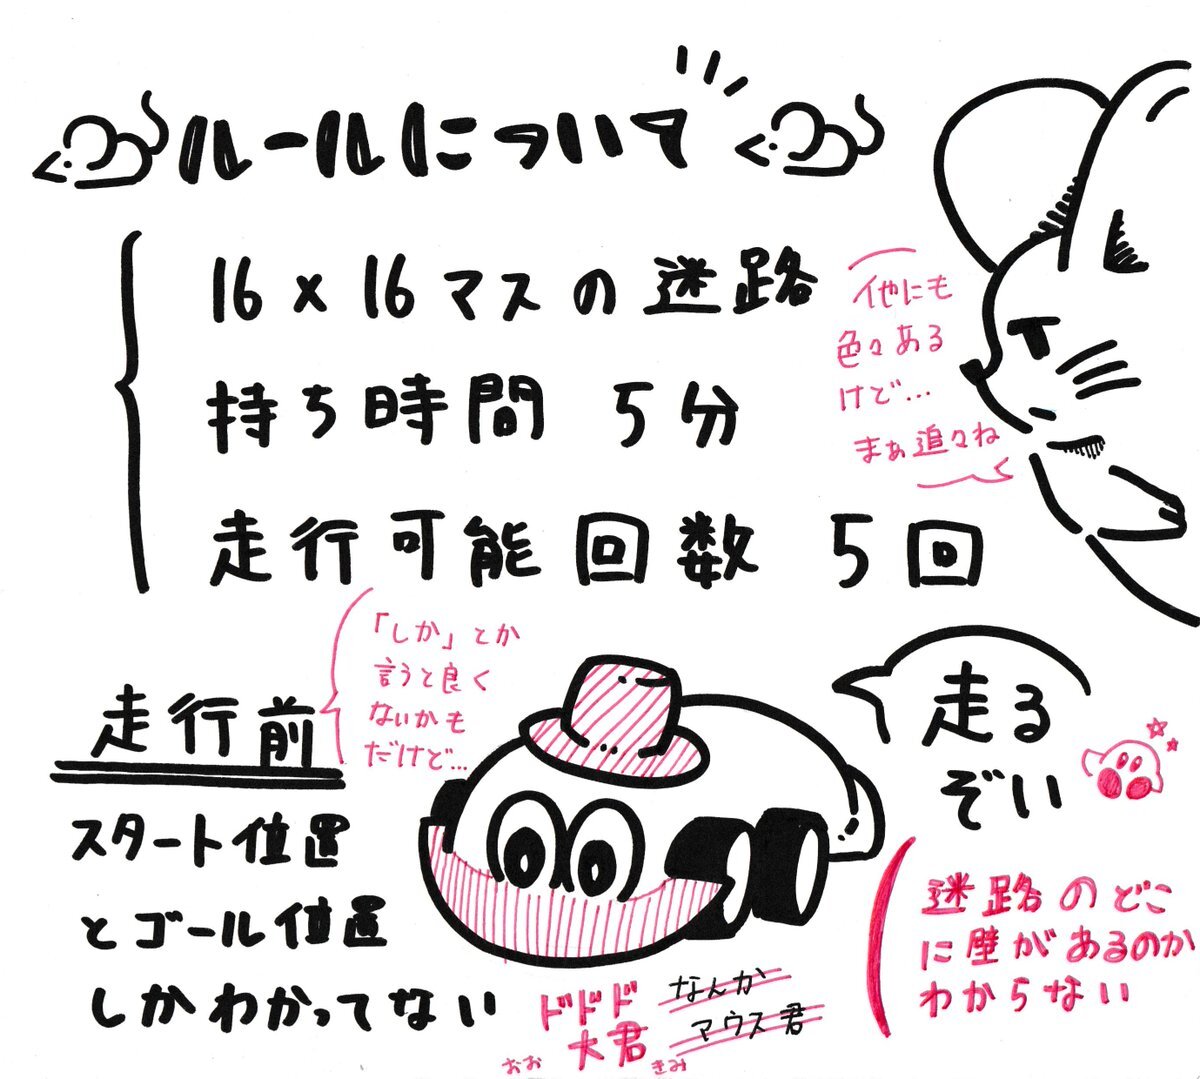 ルールについて
16×16マスの迷路
持ち時間 5分
走行可能回数 5回
他にも
色々ある
けど…
まぁ追々ね
走行前
スタート位置
とゴール位置
しかわかってない
「しか」とか
言うと良く
ないかも
だけど…
走る
ぞい
迷路のどこ
に壁があるのか
わからない
なんか
マウス君
ドドド
大君
おお きみ